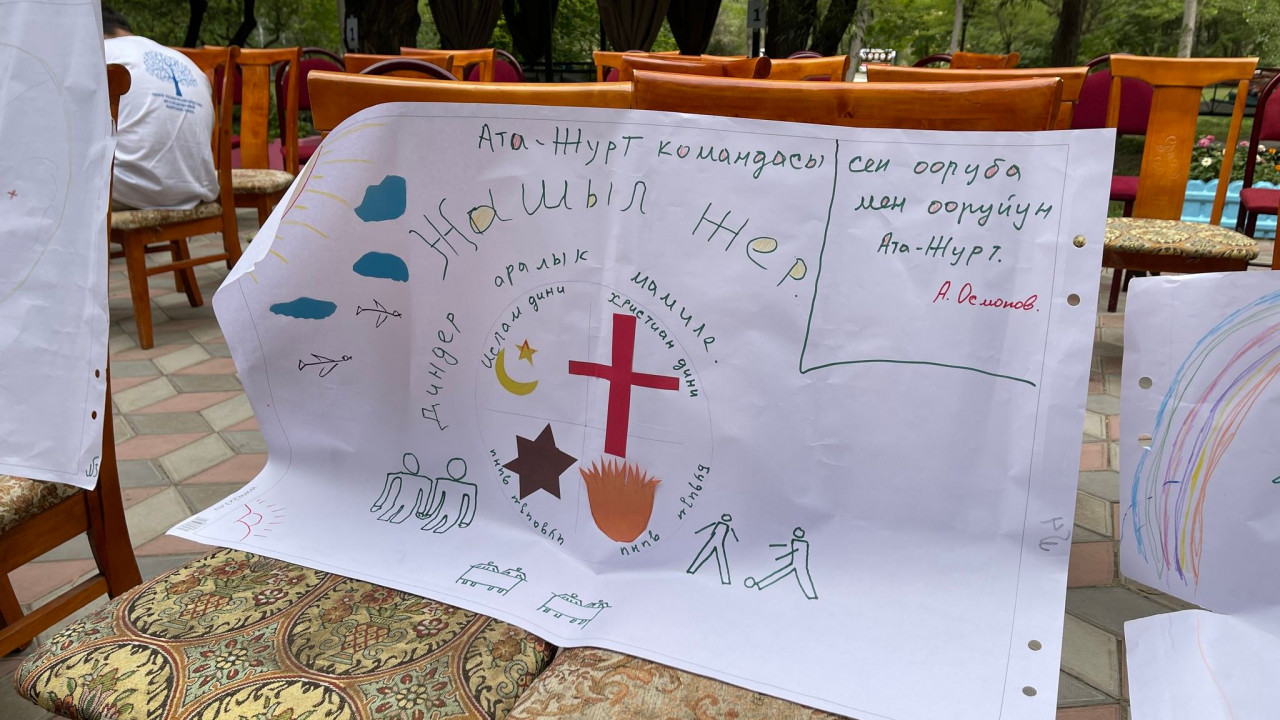 Ата-Журт командасы
Жашыл Жер.
сен ооруба
мен ооруйун
Ата-Журт.
А. Осмонов.
Диндер аралык мамиле.
ислам дини
христиан дини
иудаизм дини
Будизм дини